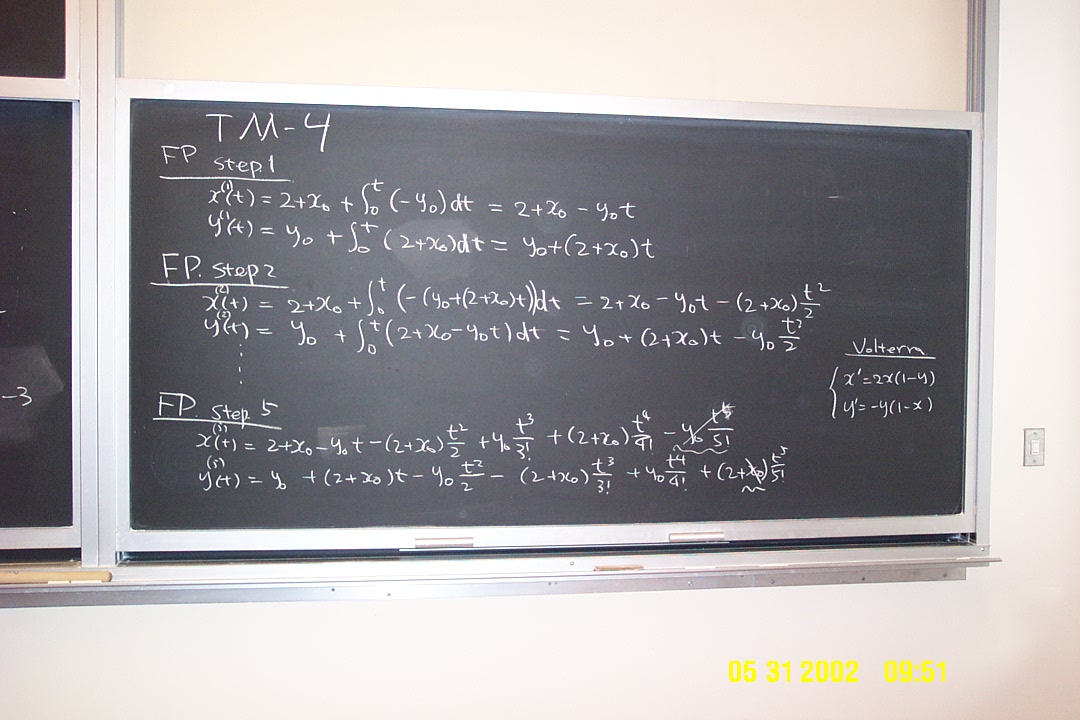 TM-4
FP step.1
x⁽¹⁾(t) = 2+x₀ + ∫₀ᵗ (-y₀)dt = 2+x₀ - y₀t
y⁽¹⁾(t) = y₀ + ∫₀ᵗ (2+x₀)dt = y₀+(2+x₀)t
FP. step 2
x⁽²⁾(t) = 2+x₀ + ∫₀ᵗ (-(y₀+(2+x₀)t))dt = 2+x₀ - y₀t - (2+x₀) t²/2
y⁽²⁾(t) = y₀ + ∫₀ᵗ (2+x₀-y₀t)dt = y₀ + (2+x₀)t - y₀ t²/2
Volterra
{ x'=2x(1-y)
y'=-y(1-x)
-3
FP. step. 5
x⁽⁵⁾(t) = 2+x₀-y₀t-(2+x₀) t²/2 + y₀ t³/3! + (2+x₀) t⁴/4! - y₀ t⁵/5!
y⁽⁵⁾(t) = y₀ + (2+x₀)t - y₀ t²/2 - (2+x₀) t³/3! + y₀ t⁴/4! + (2+x₀) t⁵/5!
05 31 2002 09:51